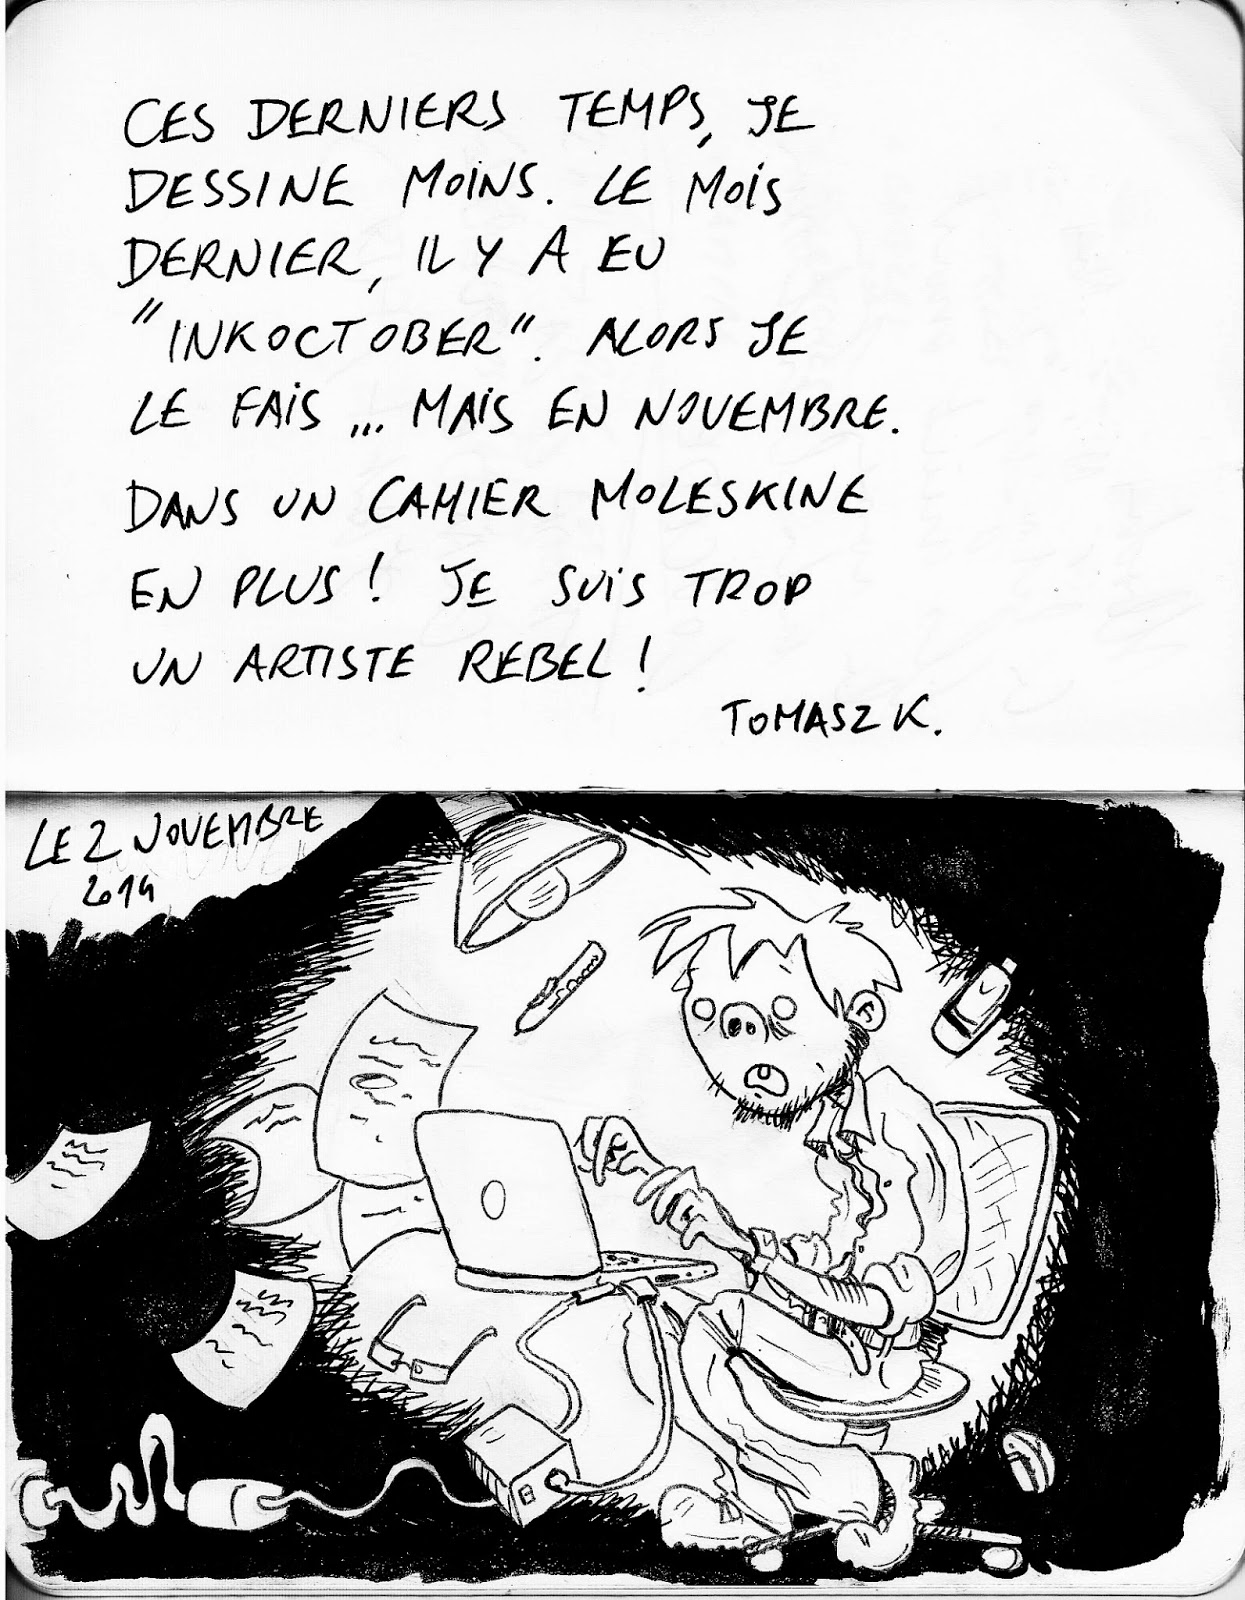 CES DERNIERS TEMPS, JE
DESSINE MOINS. LE MOIS
DERNIER, IL Y A EU
"INKOCTOBER". ALORS JE
LE FAIS ... MAIS EN NOVEMBRE.
DANS UN CAHIER MOLESKINE
EN PLUS ! JE SUIS TROP
UN ARTISTE REBEL !
TOMASZ K.
LE 2 NOVEMBRE
2014